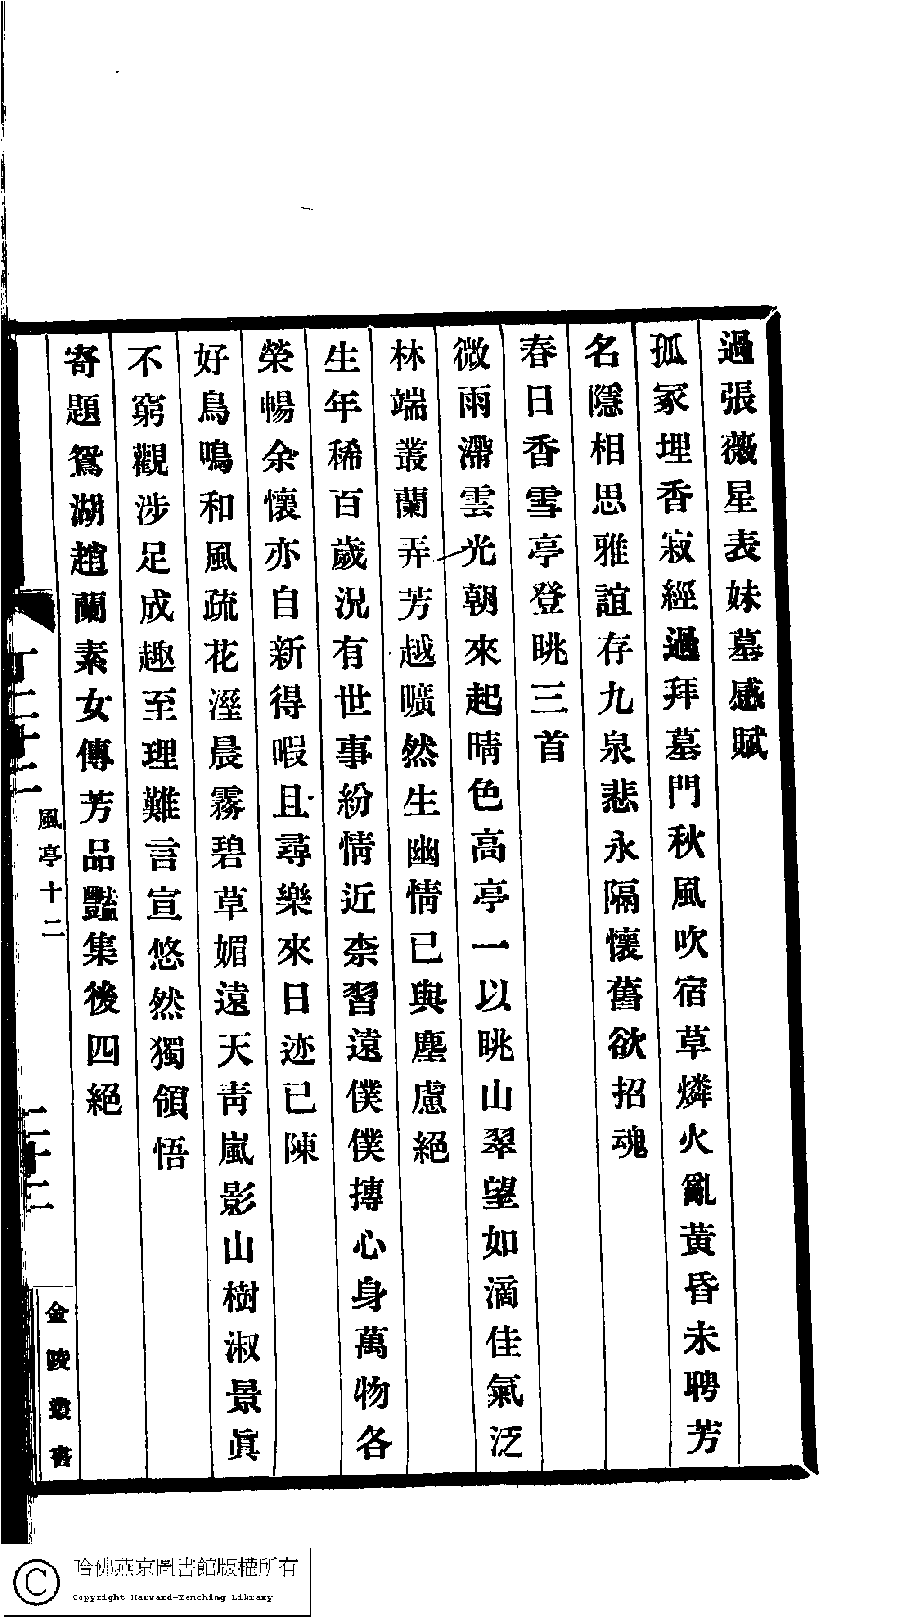 過張薇星表妹墓感賦
孤冢埋香寂經過拜墓門秋風吹宿草燐火亂黃昏未聘芳
名隱相思雅誼存九泉悲永隔懷舊欲招魂
春日香雪亭登眺三首
微雨滯雲光朝來起晴色高亭一以眺山翠望如滴佳氣泛
林端叢蘭弄芳越曠然生幽情已與塵慮絕
生年稀百歲況有世事紛情近柰習遠僕僕摶心身萬物各
榮暢余懷亦自新得暇且尋樂來日迹已陳
好鳥鳴和風疏花溼晨霧碧草媚遠天青嵐影山樹淑景眞
不窮觀涉足成趣至理難言宣悠然獨領悟
寄題鴛湖趙蘭素女傳芳品豔集後四絕
風亭十二
金陵叢書
哈佛燕京圖書館版權所有
Copyright Harvard-Yenching Library